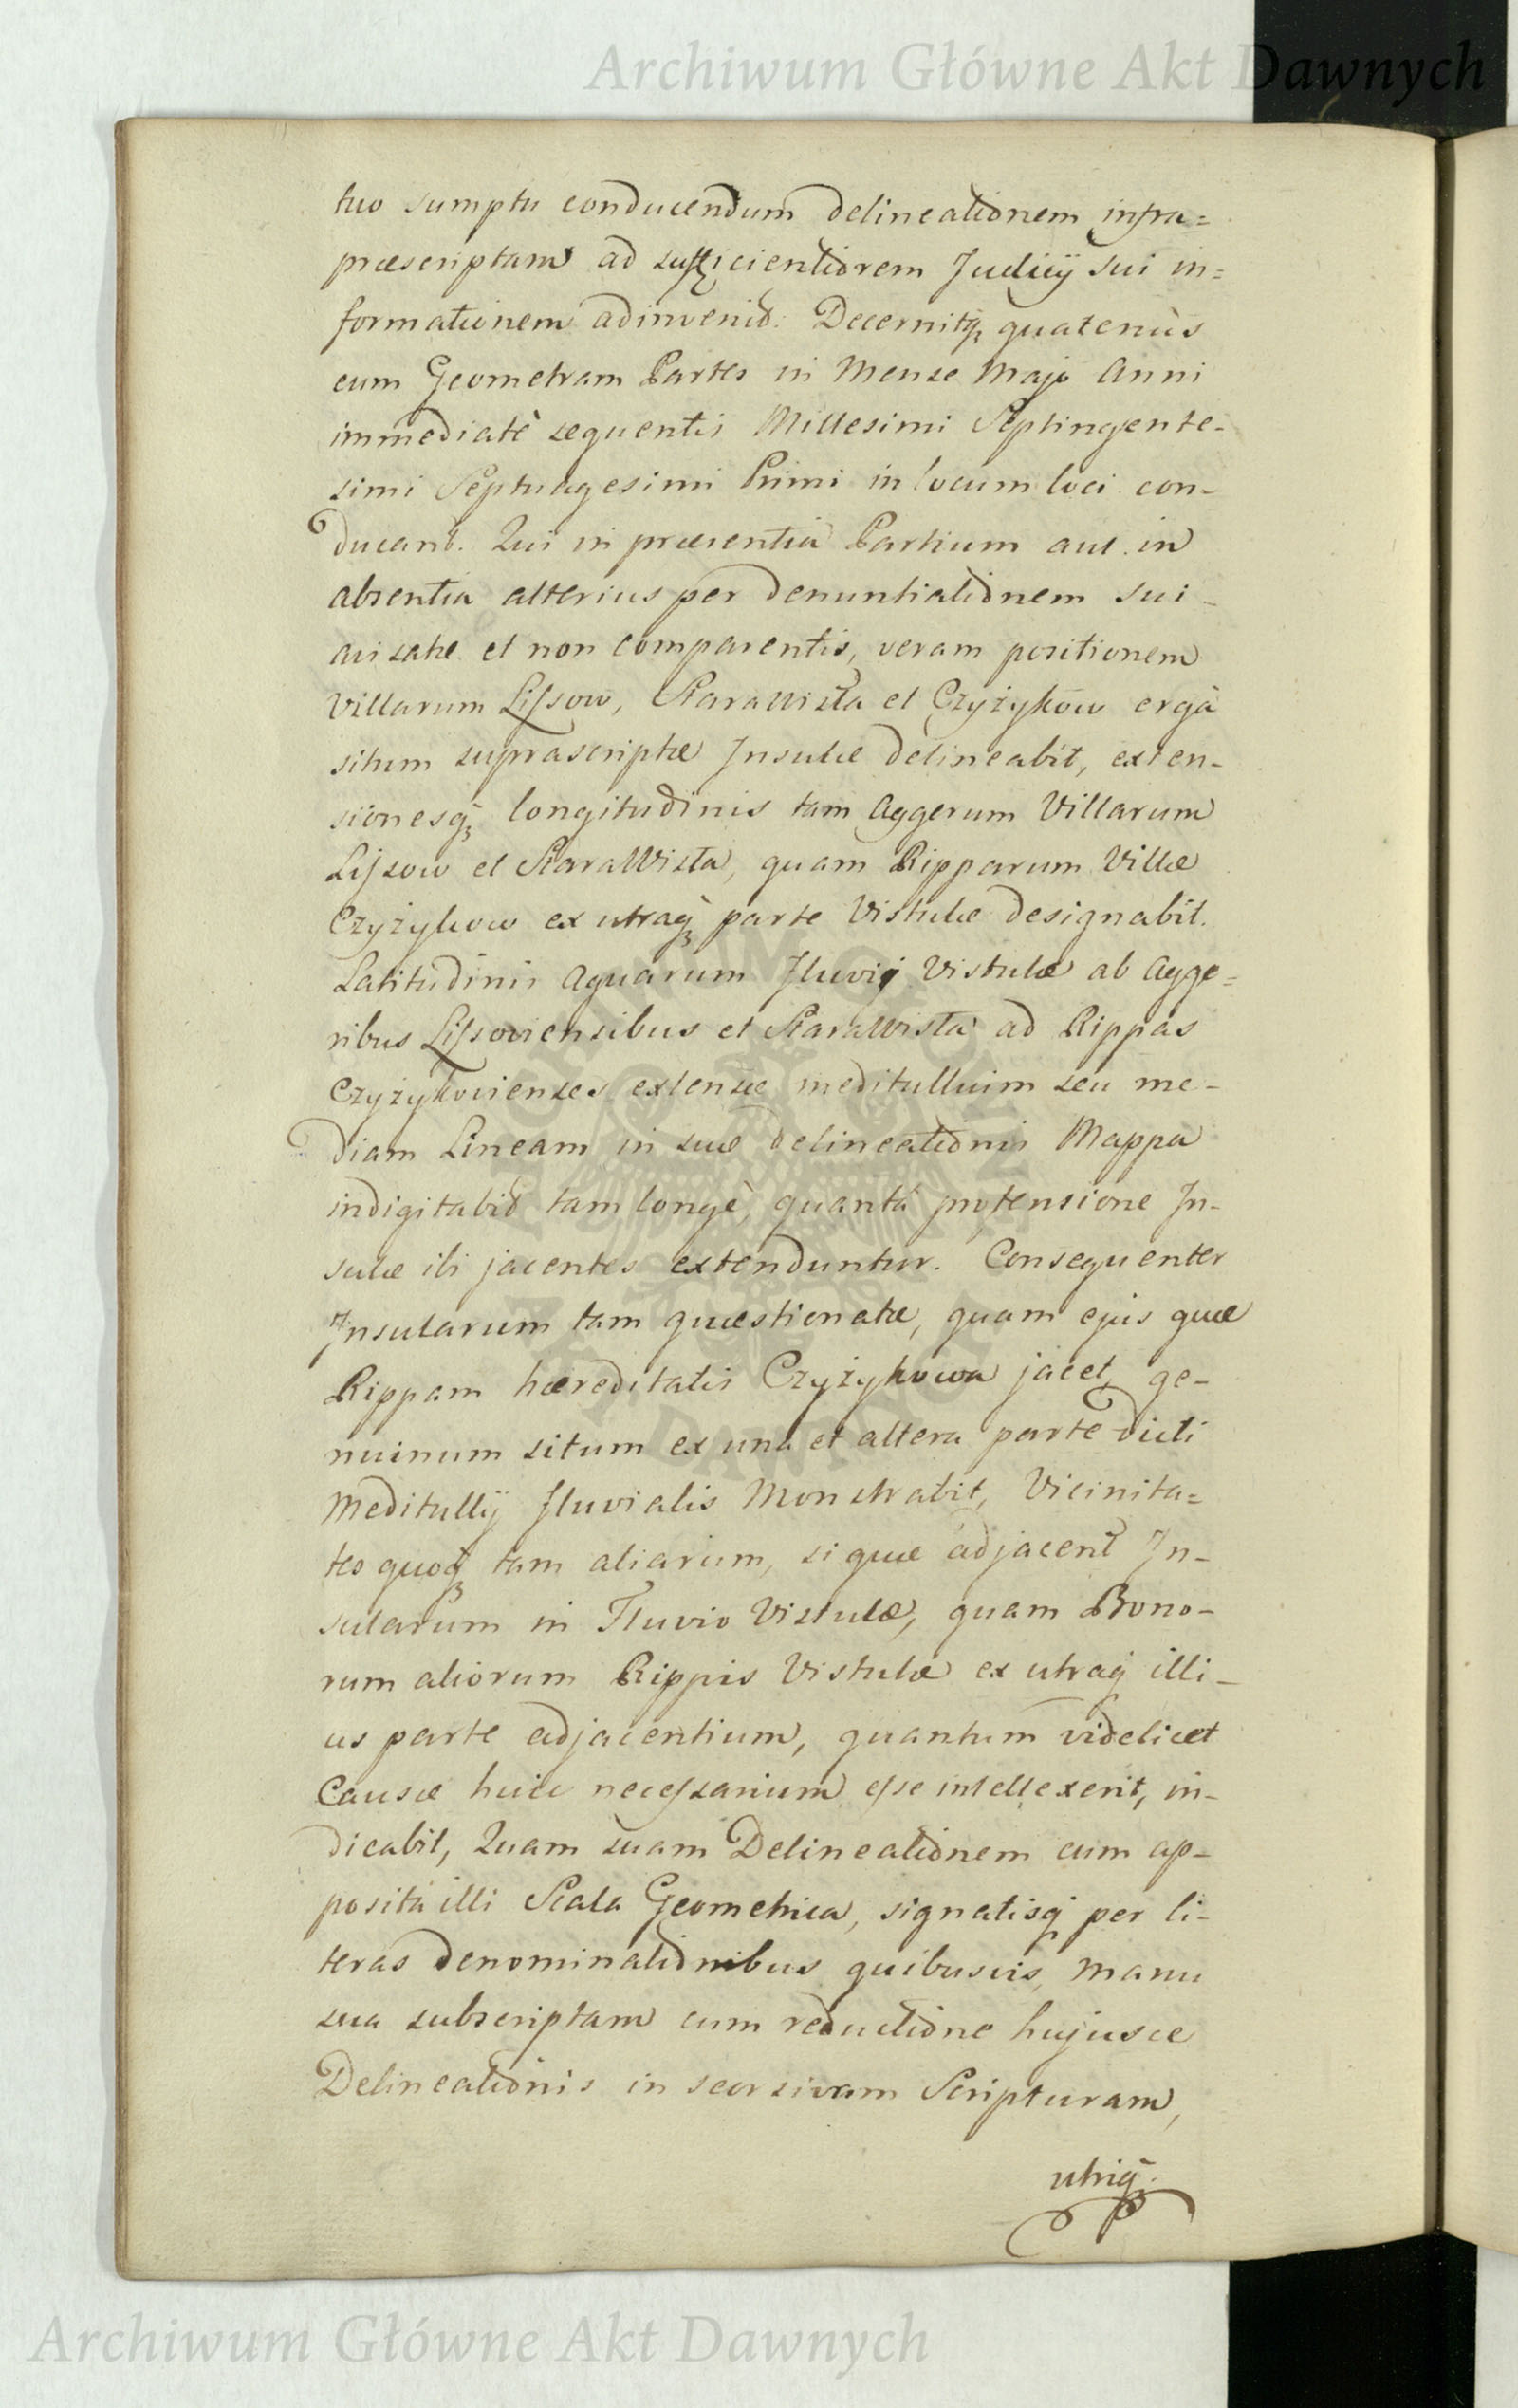 Archiwum Główne Akt Dawnych
tuo sumptu conducendum delineationem infra=
præscriptam ad sufficientiorem Judicÿ sui in=
formationem adinvenit. Decernitq; quatenùs
eum Geometram Partes in Mense Majo Anni
immediatè sequentis Millesimi Septingente-
simi Septuagesimi Primi in locum loci con-
ducant. Qui in præsentia Partium aut in
absentia alterius per denuntiationem sui
avisatæ et non comparentis, veram positionem
Villarum Lissow, StaraWisła et Czyżykow ergà
situm suprascriptæ Insulæ delineabit, exten-
sionesq; longitudinis tam Aggerum Villarum
Lissow et StaraWisła, quam Ripparum Villæ
Czyżykow ex utraq; parte Vistulæ designabit.
Latitudinis Aquarum Fluvij Vistulæ ab Agge=
ribus Lissoviensibus et StaraWisła ad Rippas
Czyżykovienses extensæ meditullium seu me-
diam Lineam in suæ delineationis Mappa
indigitabit tam longè, quantá protensione In-
sulæ ibi jacentes extenduntur. Consequenter
Insularum tam quæstionatæ, quam ejus quæ
Rippam hæreditatis Czyżykowa jacet, ge-
nuinum situm ex una et altera parte dicti
Meditullÿ fluvialis Monstrabit, Vicinita=
tes quoq; tam aliarum, si quæ adjacent In-
sularum in Fluvio Vistulæ, quam Bono-
rum aliorum Rippis Vistulæ ex utraq; illi-
us parte adjacentium, quantum videlicet
Causæ huic necessarium esse intellexerit, in-
dicabit, Quam suam Delineationem cum ap-
posita illi Scala Geometrica, signatisq; per li-
teras denominationibus quibusvis, manu
sua subscriptam cum reductione hujusce
Delineationis in seorsivam Scripturam,
utriq;
Archiwum Główne Akt Dawnych